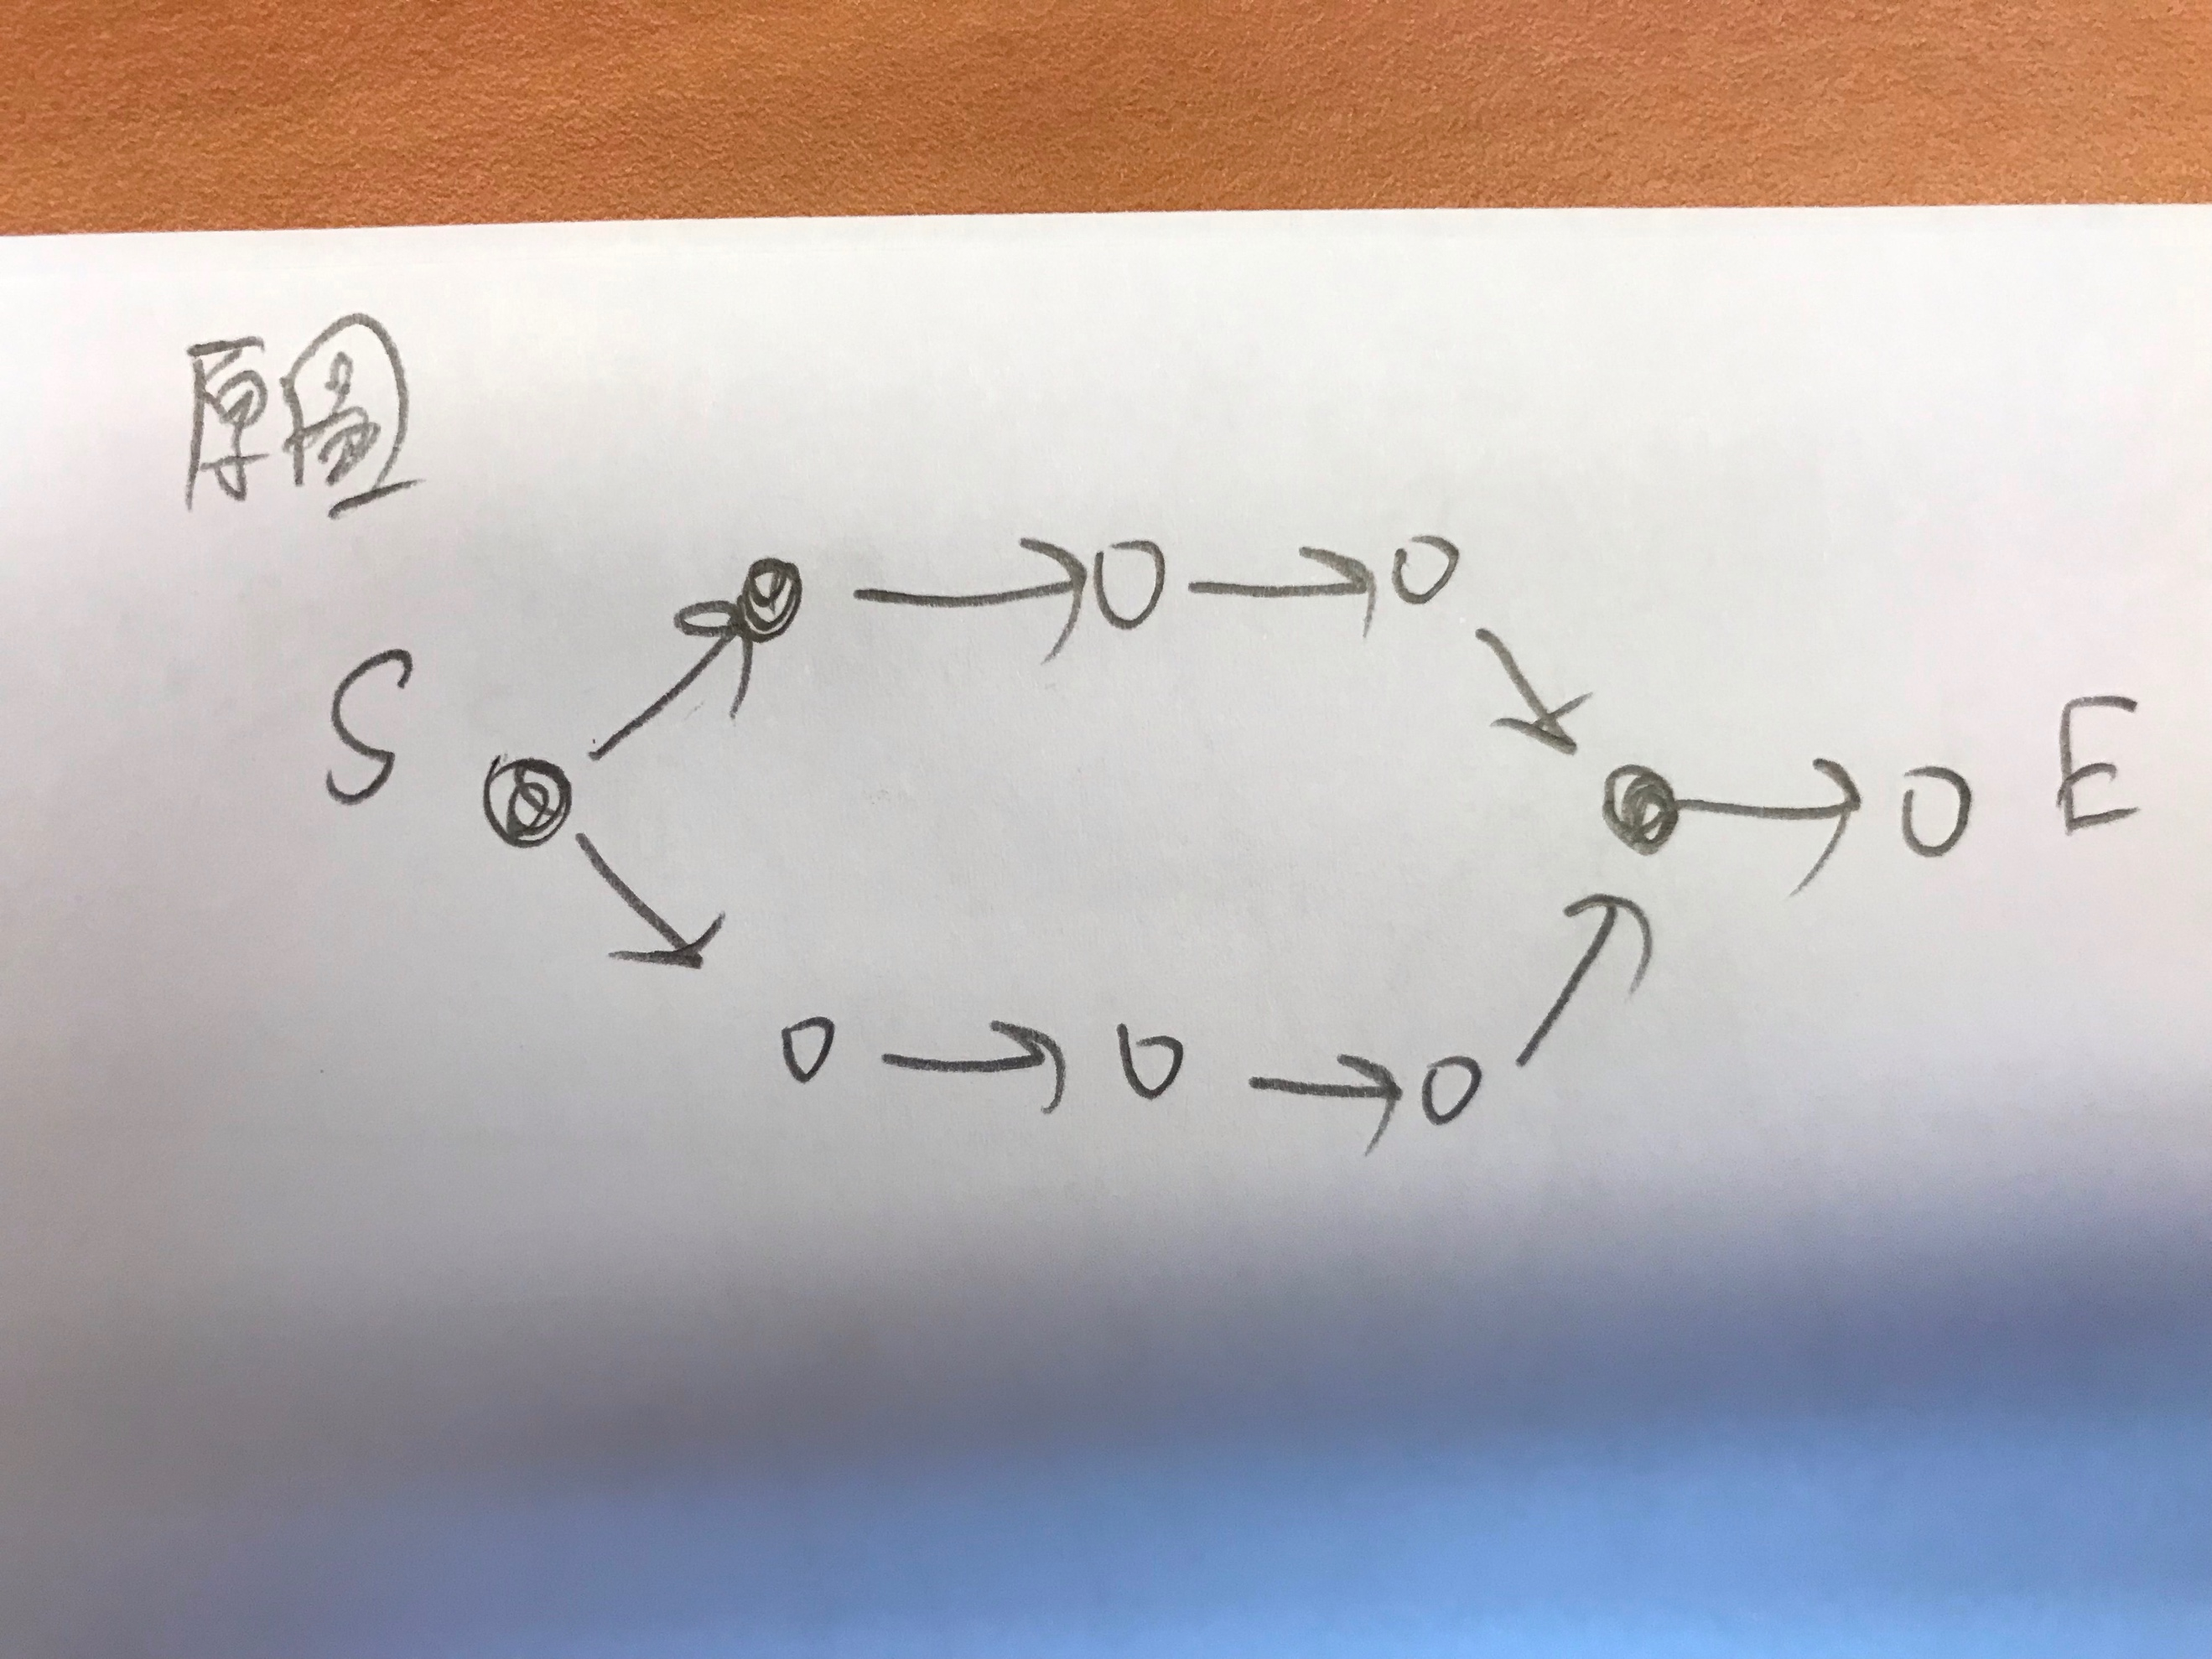 原圖
S
E